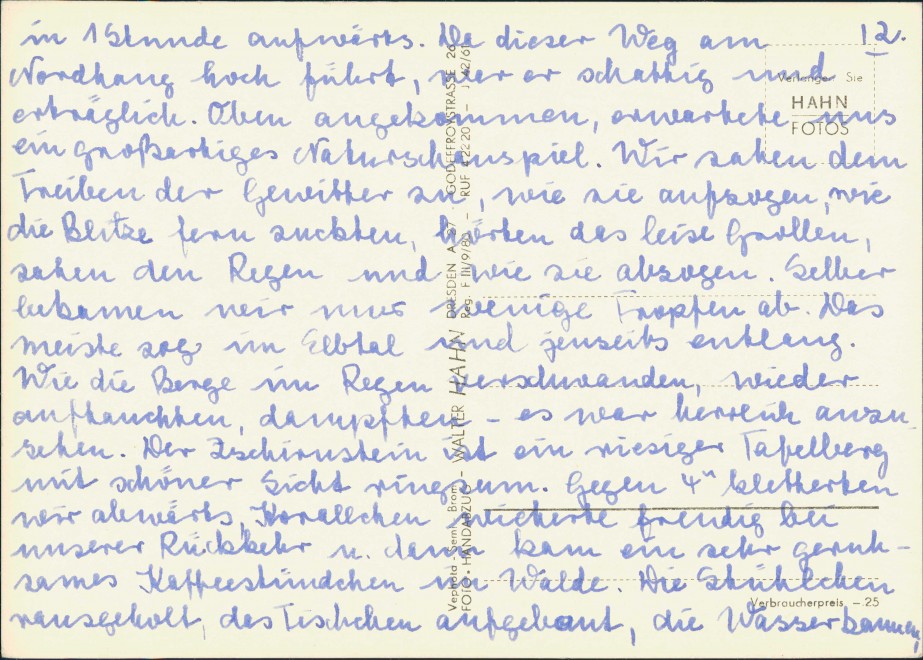 12.
in 1 Stunde aufwärts. Da dieser Weg am
Nordhang hoch führt, war er schattig und
erträglich. Oben angekommen, erwartete uns
ein großartiges Naturschauspiel. Wir sahen dem
Treiben der Gewitter zu, wie sie aufzogen, wie
die Blitze fern zuckten, hörten das leise Grollen,
sahen den Regen und wie sie abzogen. Selber
bekamen wir nur wenige Tropfen ab. Das
meiste zog im Elbtal und jenseits entlang.
Wie die Berge im Regen verschwanden, wieder
auftauchten, dampften – es war herrlich anzu
sehen. Der Zschirnstein ist ein riesiger Tafelberg
mit schöner Sicht ringsum. Gegen 4ʰ kletterten
wir abwärts, Korallchen wieherte freudig bei
unserer Rückkehr u. dann kam ein sehr geruh-
sames Kaffeestündchen im Walde. Die Stühlchen
rausgeholt, das Tischchen aufgebaut, die Wasserkannen,
Verlangen Sie
HAHN
FOTOS
Vephota - Seml. Brom
FOTO - HANDABZUG - WALTER HAHN DRESDEN A 37, GODEFFROYSTRASSE 26
Reg. F III/9/80 - RUF 4 22 20 - J 42/61
Verbraucherpreis -.25